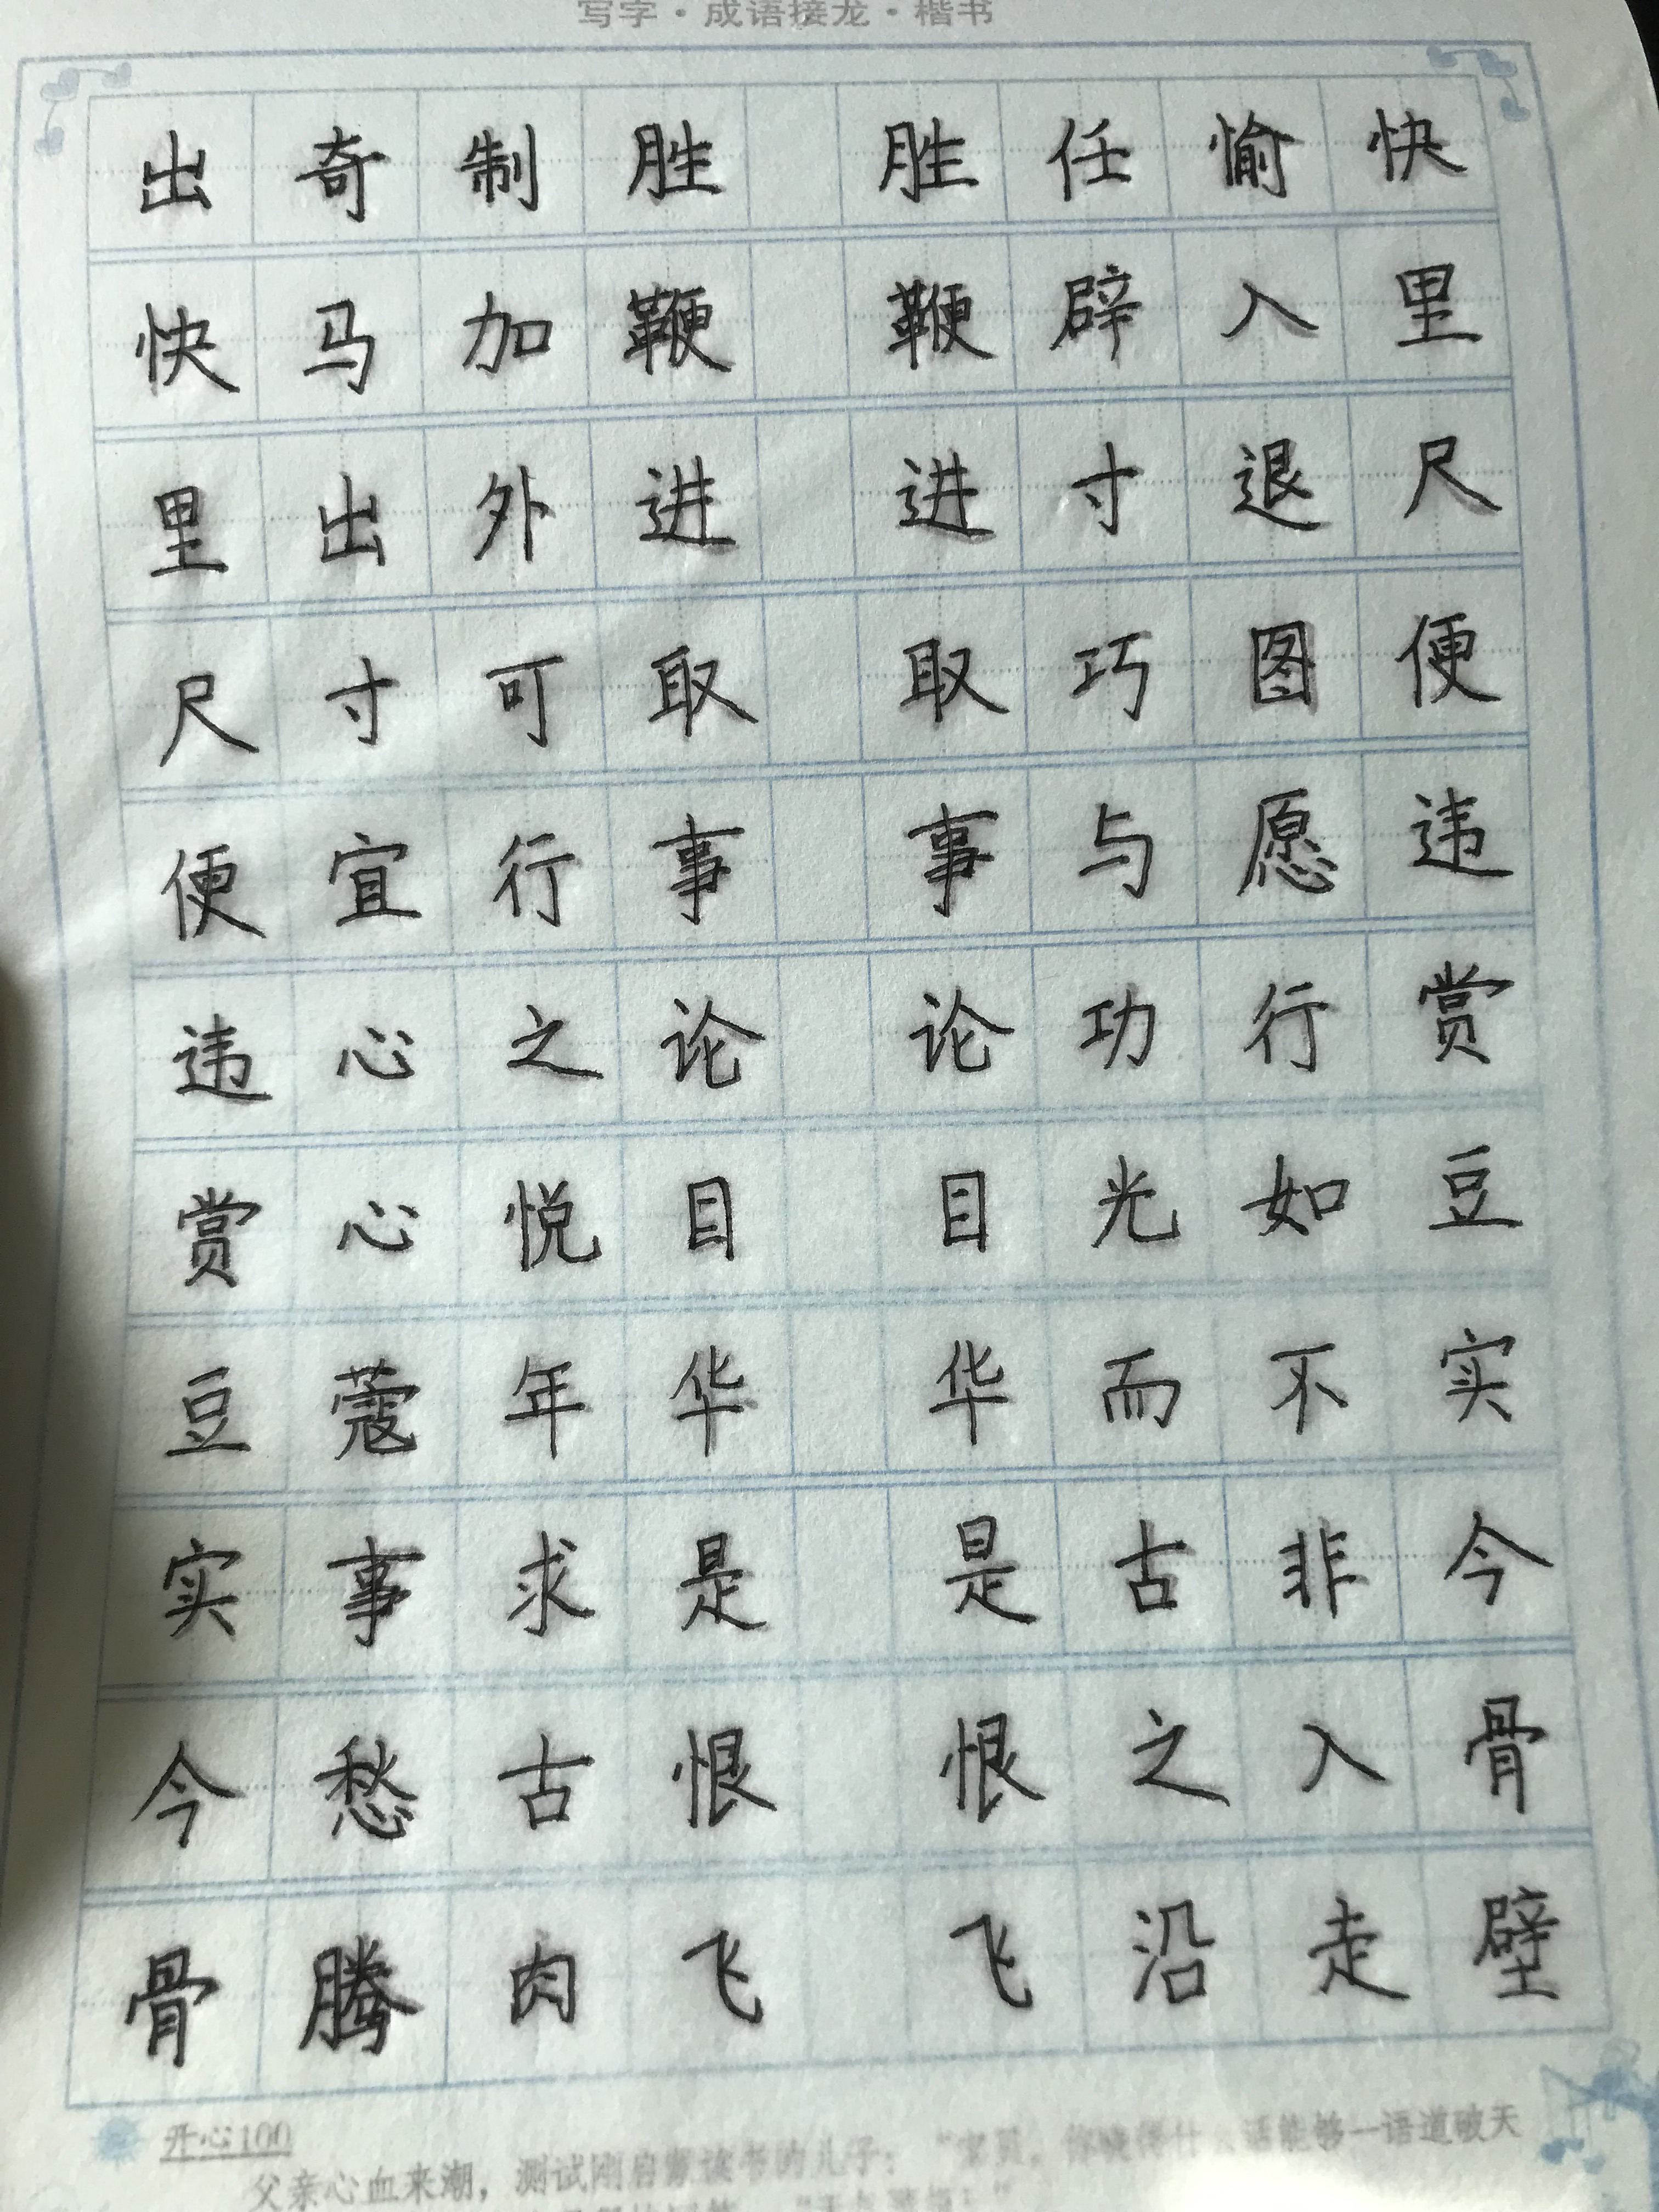 写字·成语接龙·楷书
出奇制胜 胜任愉快
快马加鞭 鞭辟入里
里出外进 进寸退尺
尺寸可取 取巧图便
便宜行事 事与愿违
违心之论 论功行赏
赏心悦目 目光如豆
豆蔻年华 华而不实
实事求是 是古非今
今愁古恨 恨之入骨
骨腾肉飞 飞沿走壁
开心100
父亲心血来潮，测试刚启蒙读书的儿子：“宝贝，你晓得什么话能够一语道破天